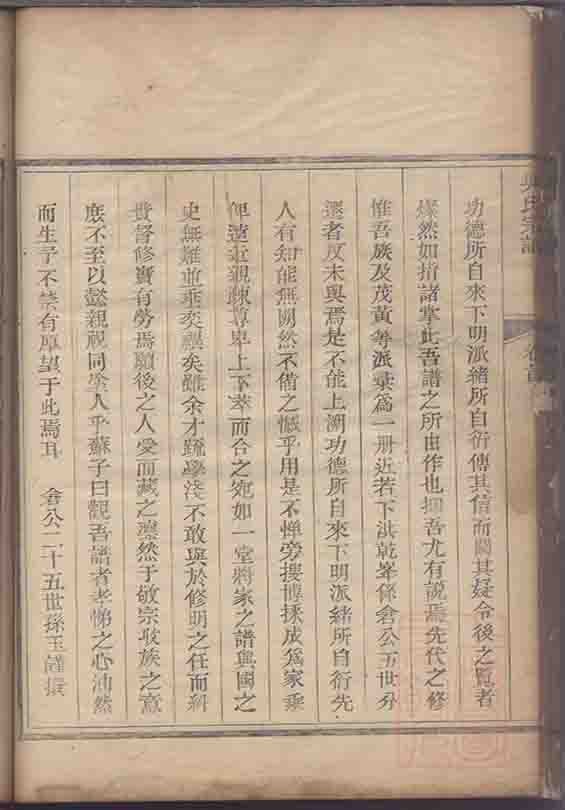 吳氏宗譜 卷首
功德所自來下明派緒所自衍傳其信而闕其疑令後之覽者
燦然如指諸掌此吾譜之所由作也抑吾尤有說焉先代之修
惟吾族及茂黃等派彙為一册近若下洪乾峯係倉公五世分
遷者反未與焉是不能上溯功德所自來下明派緒所自衍先
人有知能無闕然不備之憾乎用是不憚旁搜博採成為家乘
俾遠近親疎尊卑上下萃而合之宛如一堂將家之譜與國之
史無難並垂奕禩矣雖余才疏學淺不敢與於修明之任而糾
貲督修實有勞焉願後之人受而藏之凜然于敬宗收族之意
庶不至以懿親視同塗人乎蘇子曰觀吾譜者孝悌之心油然
而生予不禁有厚望于此焉耳 倉公二十五世孫玉謹撰